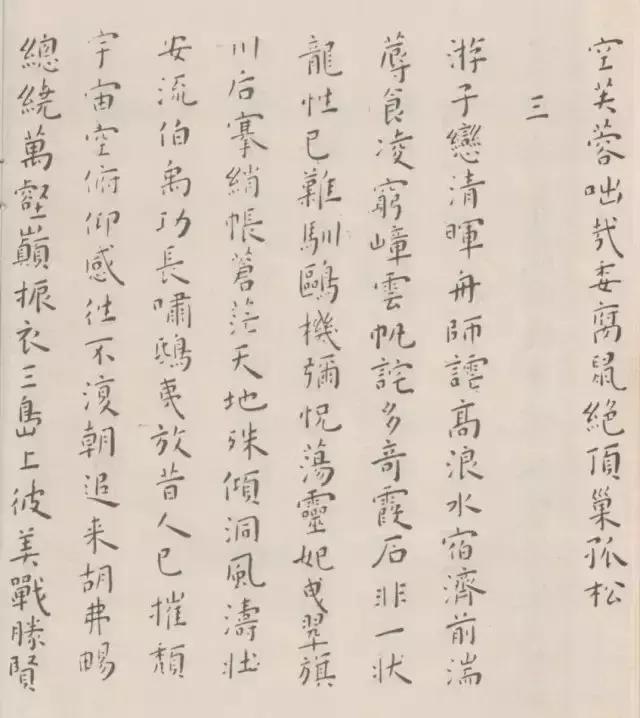 空芙蓉咄哉委腐鼠絕頂巢孤松
三
游子戀清暉舟師高浪水宿濟前湍
蓐食凌窮嶂雲帆詫多奇霞石非一狀
龍性已難馴鷗機彌怳蕩靈妃曳翠旗
川后搴綃帳蒼茫天地殊傾洞風濤壯
安流伯禹功長嘯鴟夷放昔人已摧頹
宇宙空俯仰感往不復朝追来胡弗暢
總繞萬壑巔振衣三島上彼美戰勝賢